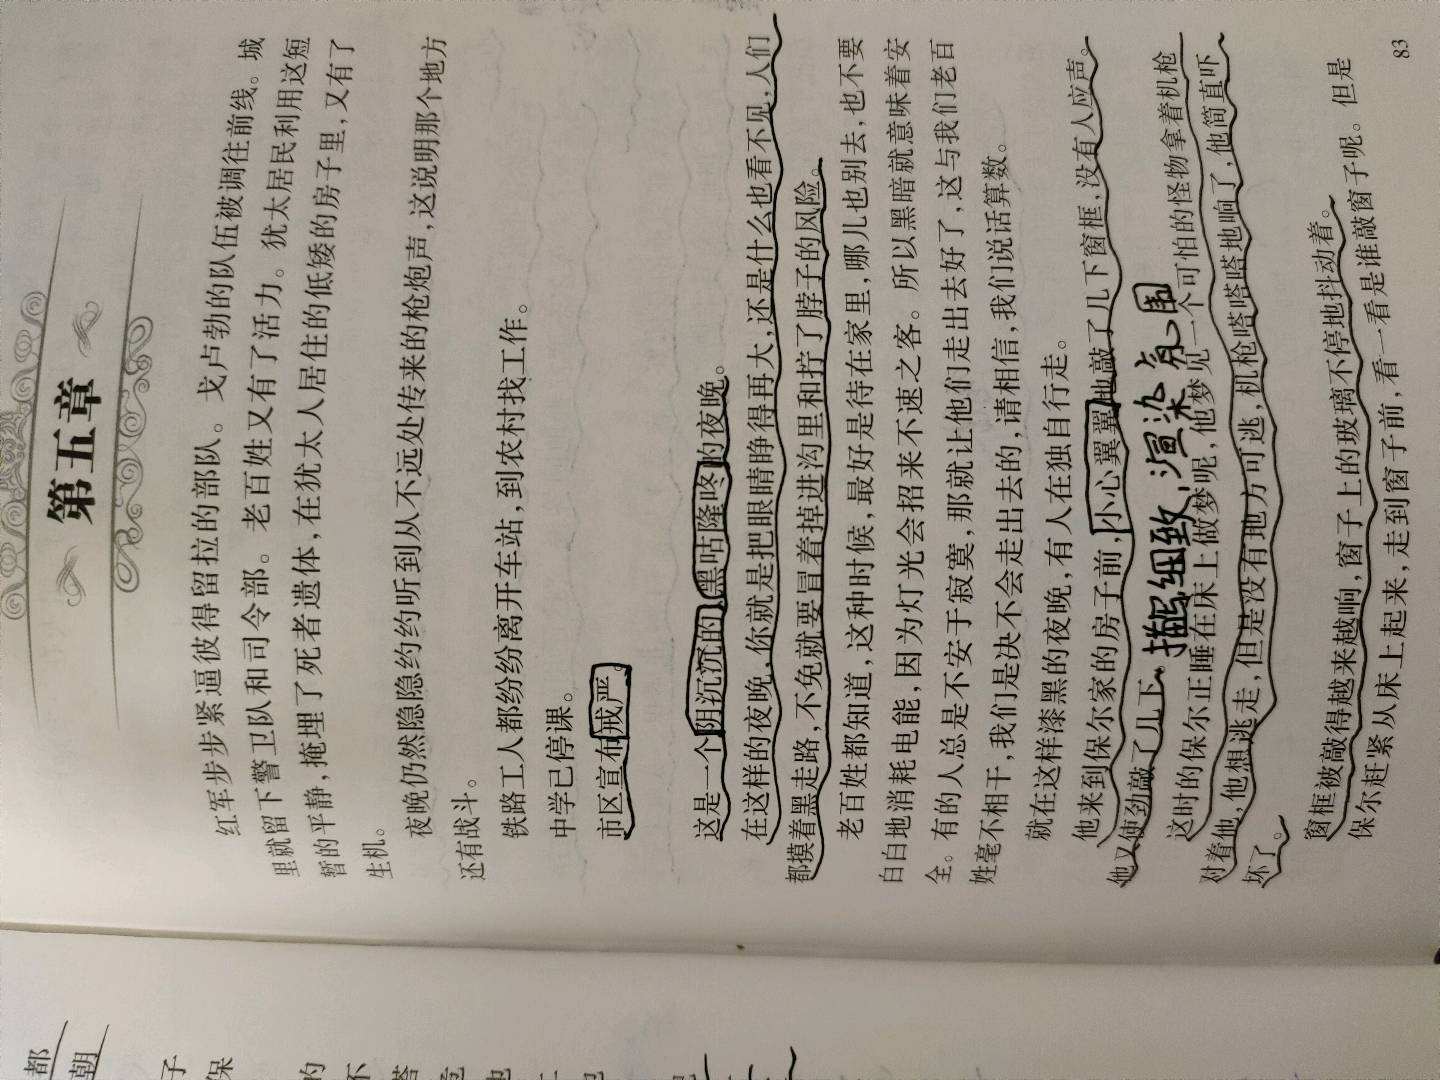 第五章
红军步步紧逼彼得留拉的部队。戈卢勃的队伍被调往前线。城
里就留下警卫队和司令部。老百姓又有了活力。犹太居民利用这短
暂的平静，掩埋了死者遗体，在犹太人居住的低矮的房子里，又有了
生机。
夜晚仍然隐隐约约听到从不远处传来的枪炮声，这说明那个地方
还有战斗。
铁路工人都纷纷离开车站，到农村找工作。
中学已停课。
市区宣布戒严。
这是一个阴沉沉的、黑咕隆咚的夜晚。
在这样的夜晚，你就是把眼睛睁得再大，还是什么也看不见，人们
都摸着黑走路，不免就要冒着掉进沟里和拧了脖子的风险。
老百姓都知道，这种时候，最好是待在家里，哪儿也别去，也不要
白白地消耗电能，因为灯光会招来不速之客。所以黑暗就意味着安
全。有的人总是不安于寂寞，那就让他们走出去好了，这与我们老百
姓毫不相干，我们是决不会走出去的，请相信，我们说话算数。
就在这样漆黑的夜晚，有人在独自行走。
他来到保尔家的房子前，小心翼翼地敲了几下窗框，没有人应声。
他又使劲敲了几下。
描写细致，渲染氛围
这时的保尔正睡在床上做梦呢，他梦见一个可怕的怪物拿着机枪
对着他，他想逃走，但是没有地方可逃，机枪嗒嗒嗒嗒地响了，他简直吓
坏了。
窗框被敲得越来越响，窗子上的玻璃不停地抖动着。
保尔赶紧从床上起来，走到窗子前，看一看是谁敲窗子呢。但是
83
都
朝
子
保
的
不
嗒